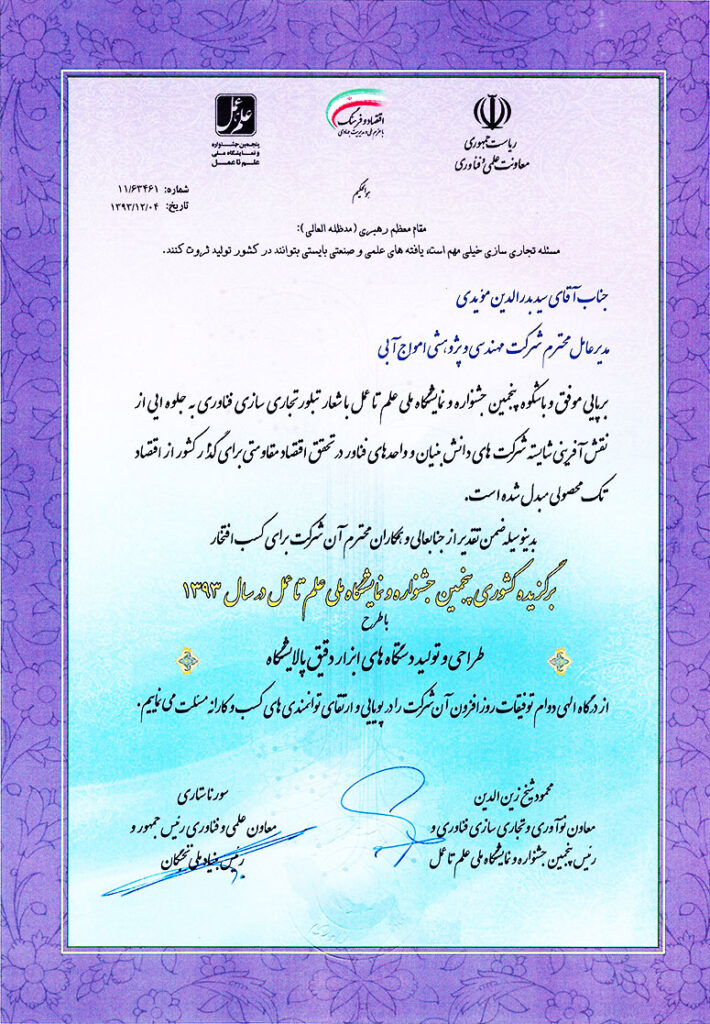 ریاست جمهوری
معاونت علمی و فناوری
اقتصاد و فرهنگ
با عزم ملی و مدیریت جهادی
علم تا عمل
پنجمین جشنواره
و نمایشگاه ملی
علم تا عمل
هوالحکیم
شماره: ۱۱/۶۳۴۶۱
تاریخ: ۱۳۹۳/۱۲/۰۴
مقام معظم رهبری (مدظله العالی):
مسئله تجاری سازی خیلی مهم است، یافته های علمی و صنعتی بایستی بتوانند در کشور تولید ثروت کنند.
جناب آقای سید بدرالدین مؤیدی
مدیرعامل محترم شرکت مهندسی و پژوهشی امواج آبی
برپایی موفق و باشکوه پنجمین جشنواره و نمایشگاه ملی علم تا عمل با شعار تبلور تجاری سازی فناوری به جلوه ایی از
نقش آفرینی شایسته شرکت های دانش بنیان و واحدهای فناور در تحقق اقتصاد مقاومتی برای گذار کشور از اقتصاد
تک محصولی مبدل شده است.
بدینوسیله ضمن تقدیر از جنابعالی و همکاران محترم آن شرکت برای کسب افتخار
برگزیده کشوری پنجمین جشنواره و نمایشگاه ملی علم تا عمل در سال ۱۳۹۳
با طرح
طراحی و تولید دستگاه های ابزار دقیق پالایشگاه
از درگاه الهی دوام توفیقات روز افزون آن شرکت را در پویایی و ارتقای توانمندی های کسب و کارانه مسئلت می نماییم.
محمود شیخ زین الدین
معاون نوآوری و تجاری سازی فناوری و
رئیس پنجمین جشنواره و نمایشگاه ملی علم تا عمل
سورنا ستاری
معاون علمی و فناوری رئیس جمهور و
رئیس بنیاد ملی نخبگان